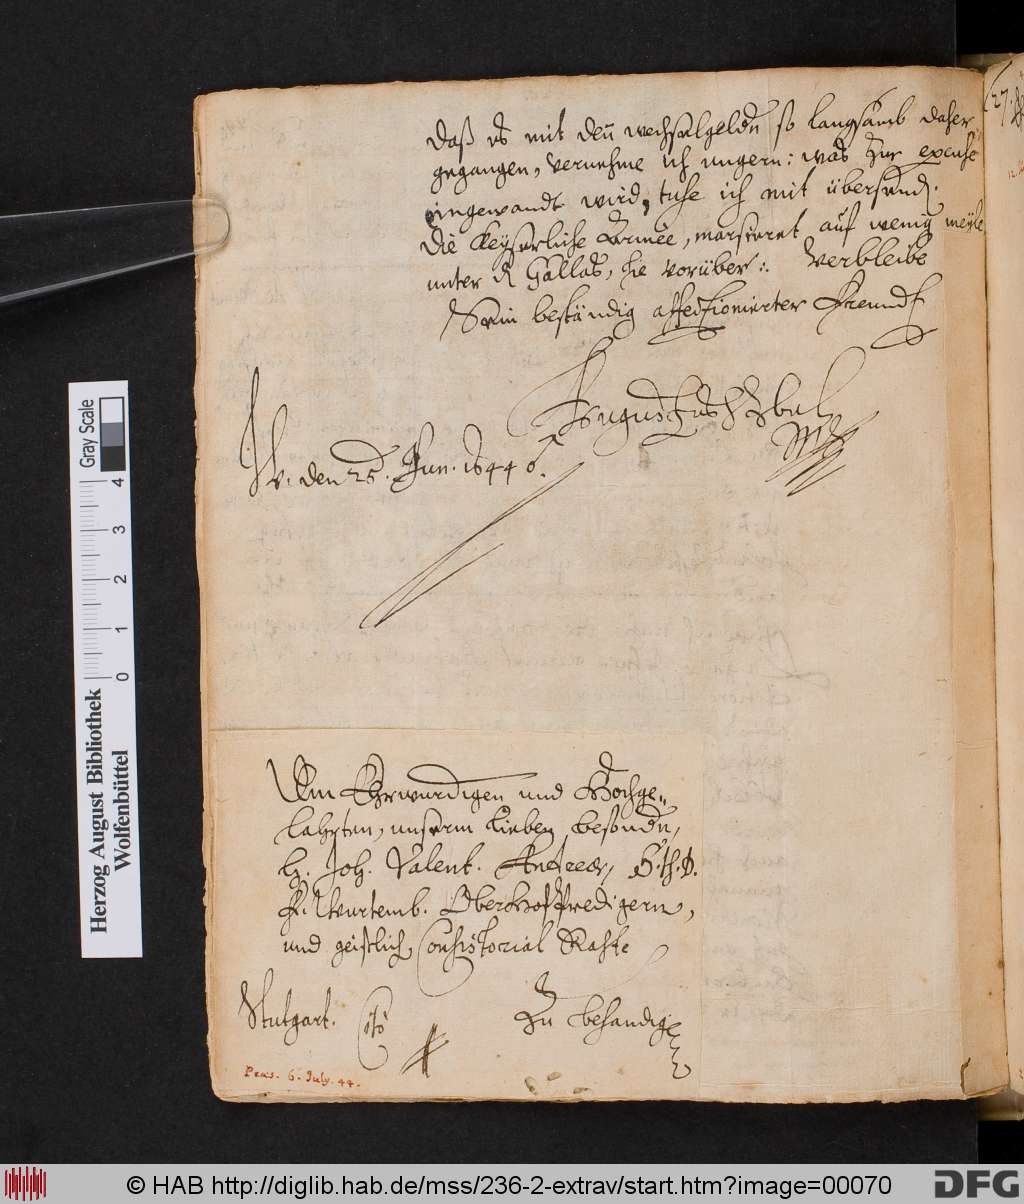 daß es mit den wechselgeldn so langsamb daher
gegangen, vernehme ich ungern: was zur excuse
eingewandt wird, tuhe ich mit übersend.
die Keyserliche Armée, marsieret auf wenig meyle
unter H Gallas, hie vorüber: Verbleibe
Sein beständig affectionierter Freund
Augustus
W. den 25. Jun. 1644
Dem Ehrwurdigen und Hochge-
lahrten, unserm lieben besondn,
H. Joh. Valent. Andreæ, S. th. D.
F. Wurtemb. OberHofPredigern,
und geistlich Consistorial Rahte
Stutgart. Cito
Zu behandig
Præs. 6. July. 44.
Herzog August Bibliothek
Wolfenbüttel
0 1 2 3 4
Gray Scale
© HAB http://diglib.hab.de/mss/236-2-extrav/start.htm?image=00070
DFG